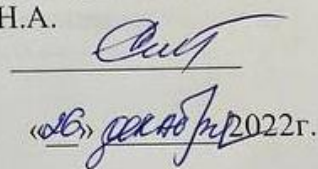 Н.А.
«26» декабря 2022г.